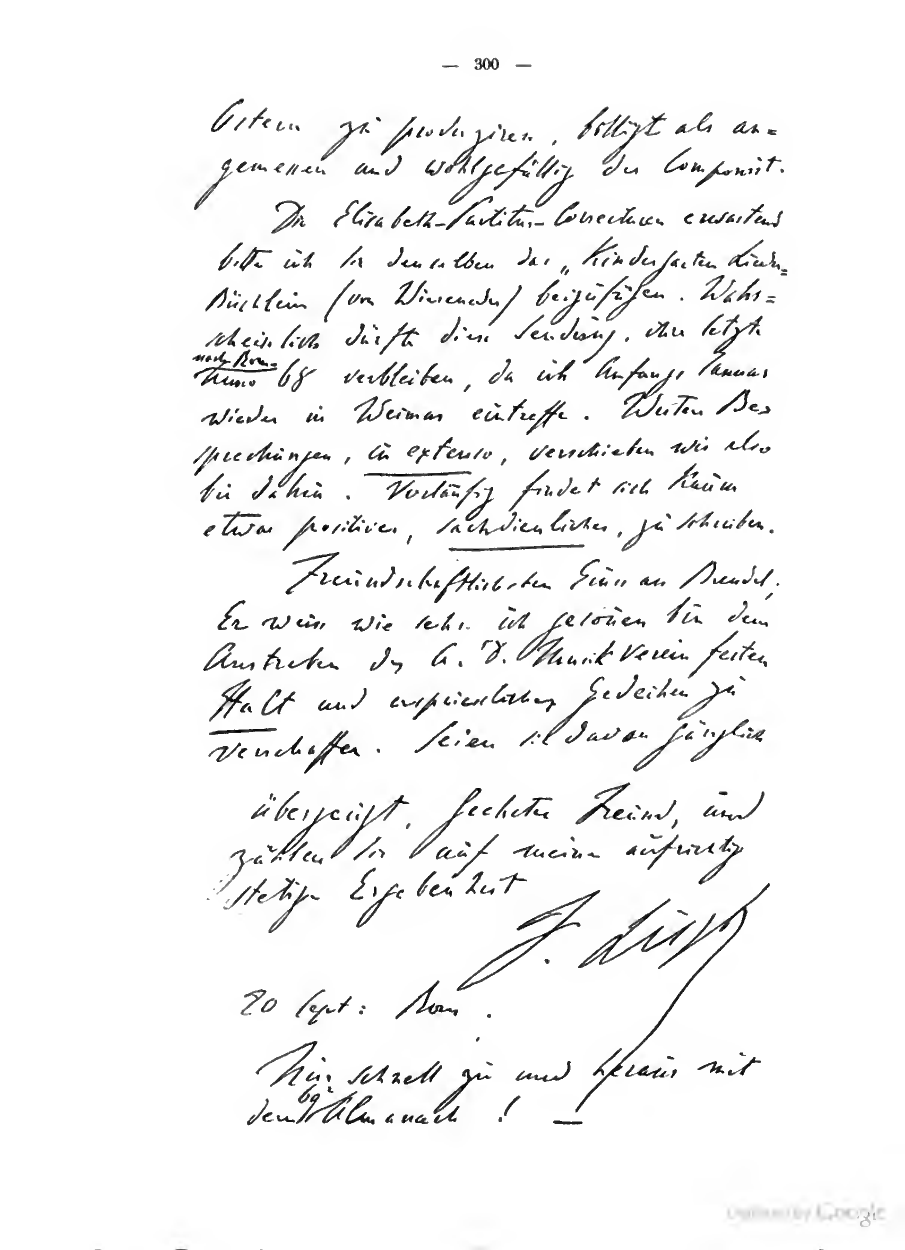 — 300 —
Ostern zu produziren, billigt als an=
gemessen und wohlgefällig der Componist.
Die Elisabeth-Partitur-Correcturen erwartend
bitte ich Sie denselben das „Kindergarten Lieder=
Büchlein (von Wieseneder) beizufügen. Wahr=
scheinlich dürfte diese Sendung, ihre letzte
nach Rom
Anno 68 verbleiben, da ich Anfangs Januar
wieder in Weimar eintreffe. Weitere Bes
sprechungen, in extenso, verschieben wir also
bis dahin. Vorläufig findet sich kaum
etwas positives, sachdienliches, zu schreiben.
Freundschaftlichsten Gruss an Brendel;
Er weiss wie sehr ich gesonnen bin dem
Anstreben des A. D. Musik Verein festen
Halt und erspriessliches Gedeihen zu
verschaffen. Seien Sie davon gänzlich
überzeugt, geehrter Freund, und
zählen Sie auf meine aufrichtig
stetige Ergebenheit
F. Liszt
20 Sept: Rom.
Nur schnell zu und heraus mit
dem 69r Almanach! —
Digitized by Google